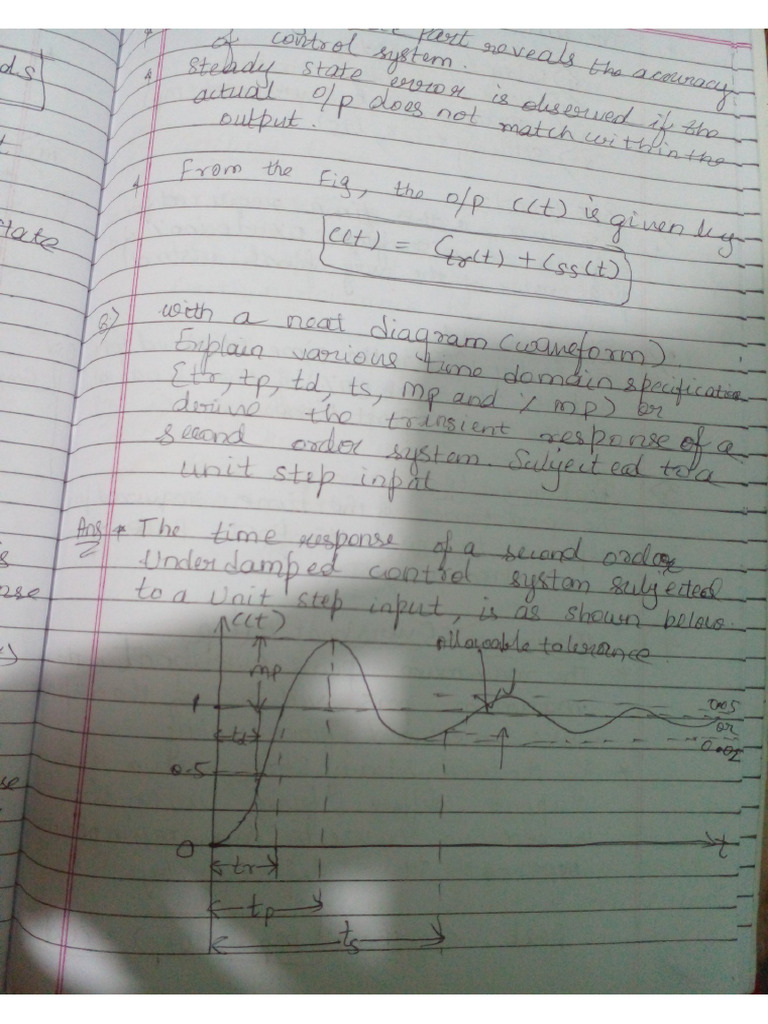 part reveals the accuracy
of control system.
* steady state error is observed if the
actual o/p does not match within the
output.
* From the Fig, the o/p c(t) is given by
c(t) = Ctr(t) + Css(t)
Q) with a neat diagram (waveform)
Explain various time domain specification
{tr, tp, td, ts, mp and % mp) or
derive the transient response of a
second order system. Subjected to a
unit step input
Ans * The time response of a second order
Underdamped control system subjected
to a Unit step input, is as shown below.
c(t)
Allowable tolerance
mp
1
0.05
or
0.02
td
0.5
0
t
tr
tp
ts
ds
state